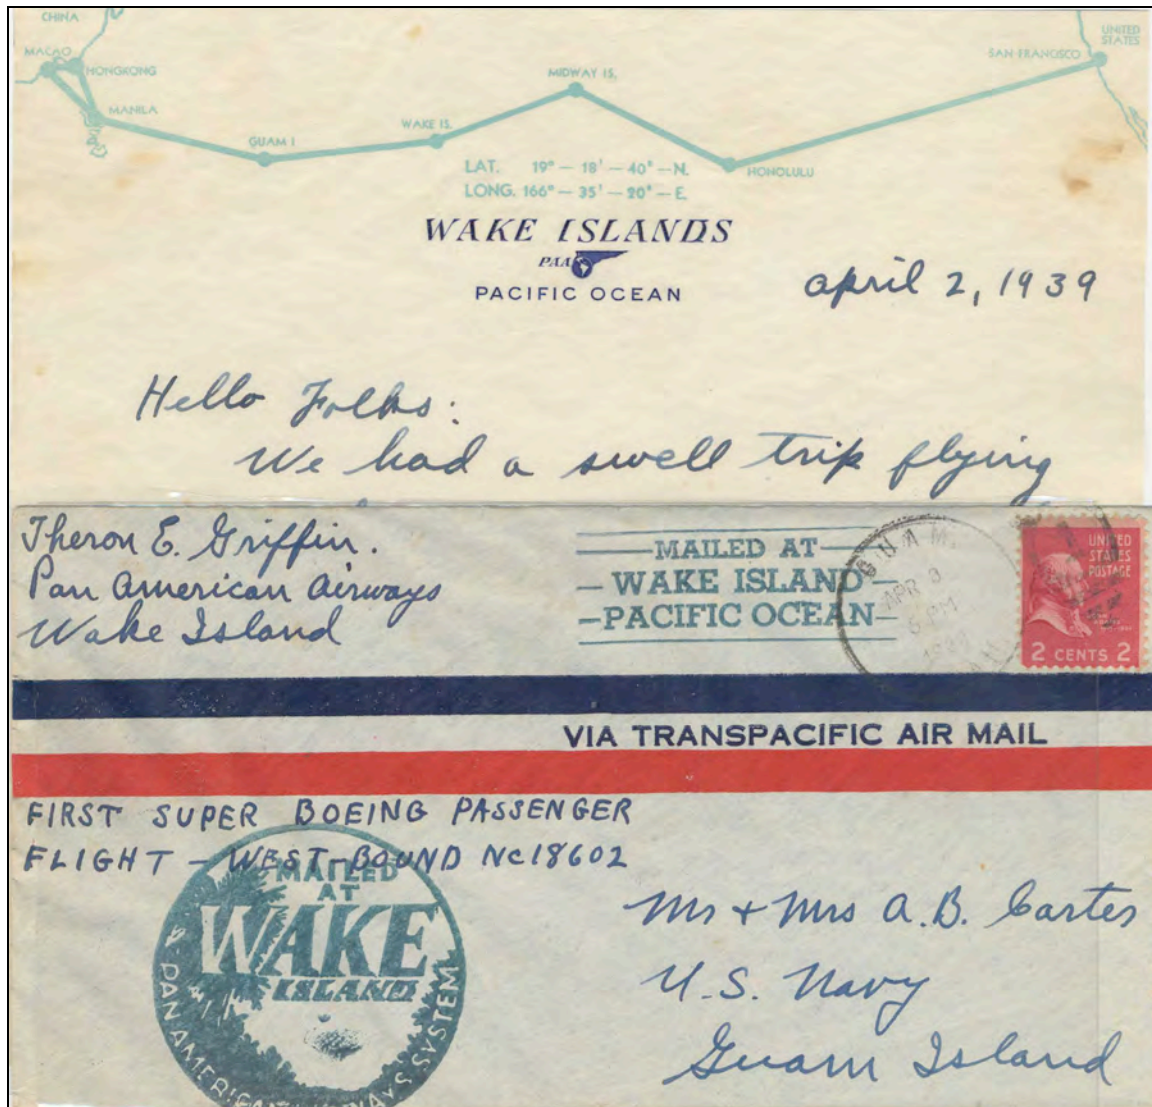 CHINA
UNITED
STATES
MACAO
HONGKONG
SAN FRANCISCO
MIDWAY IS.
MANILA
WAKE IS.
GUAM I
HONOLULU
LAT. 19° — 18' — 40" — N.
LONG. 166° — 35' — 20" — E.
WAKE ISLANDS
PAA
PACIFIC OCEAN
april 2, 1939
Hello Folks:
We had a swell trip flying
Theron E. Griffin.
Pan American Airways
Wake Island
MAILED AT
WAKE ISLAND
PACIFIC OCEAN
GUAM.
APR 3
6 PM
1939
UNITED
STATES
POSTAGE
2 CENTS 2
VIA TRANSPACIFIC AIR MAIL
FIRST SUPER BOEING PASSENGER
FLIGHT - WEST-BOUND NC18602
MAILED
AT
WAKE
ISLAND
PAN AMERICAN AIRWAYS SYSTEM
Mr + Mrs A.B. Carter
U.S. Navy
Guam Island